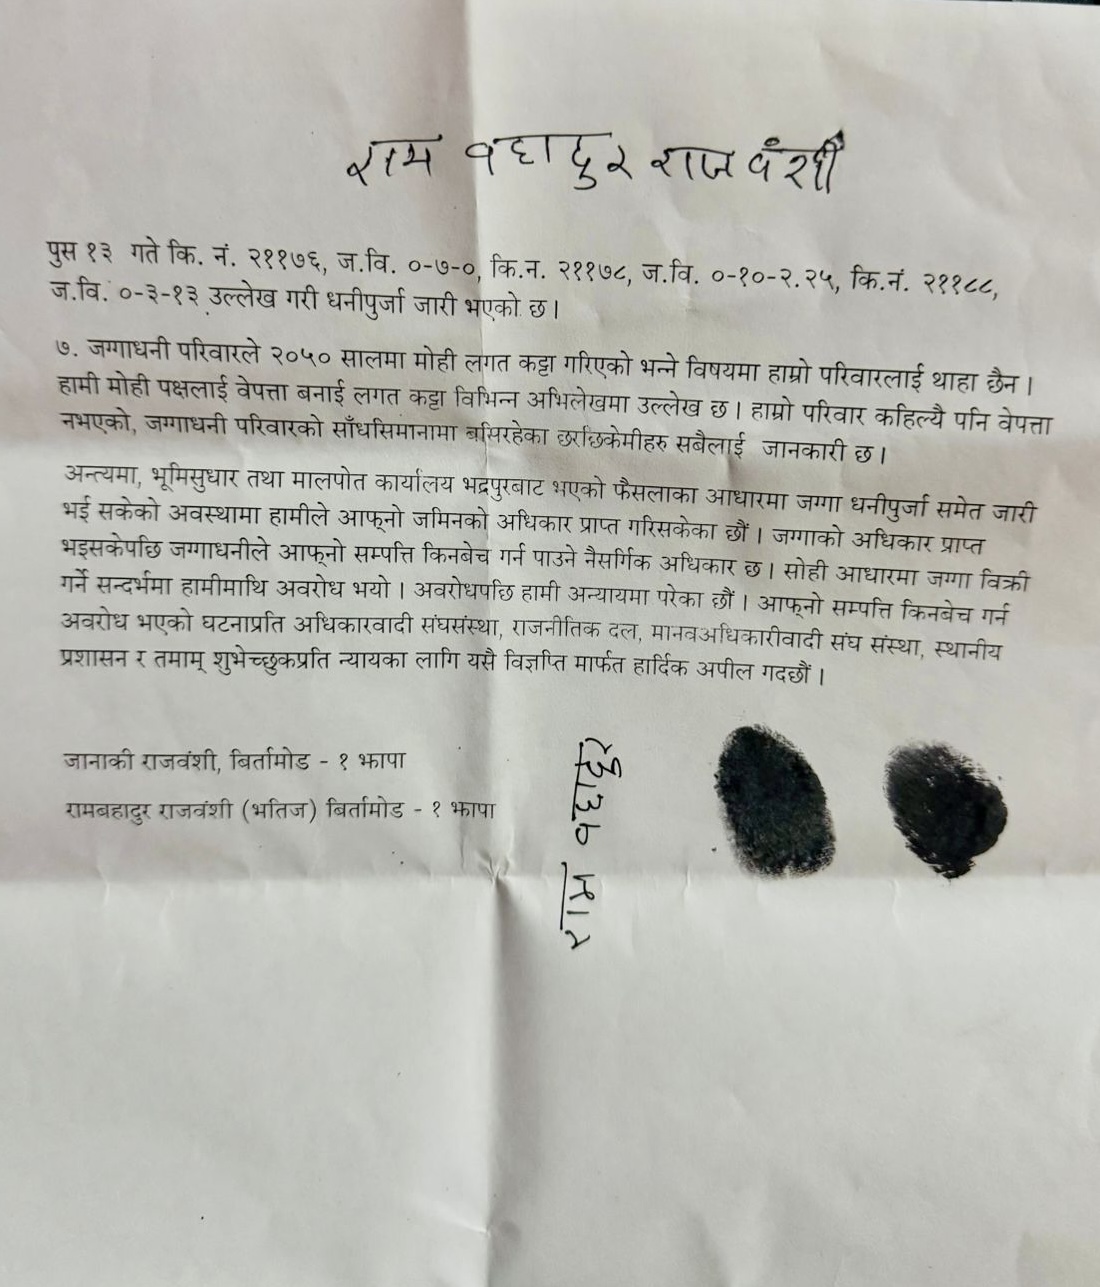 राम वहादुर राजवंशी
पुस १३ गते कि. नं. २११७६, ज.वि. ०-७-०, कि.न. २११७८, ज.वि. ०-१०-२.२५, कि.नं. २११८८,
ज.वि. ०-३-१३ उल्लेख गरी धनीपुर्जा जारी भएको छ।
७. जग्गाधनी परिवारले २०५० सालमा मोही लगत कट्टा गरिएको भन्ने विषयमा हाम्रो परिवारलाई थाहा छैन।
हामी मोही पक्षलाई वेपत्ता बनाई लगत कट्टा विभिन्न अभिलेखमा उल्लेख छ। हाम्रो परिवार कहिल्यै पनि वेपत्ता
नभएको, जग्गाधनी परिवारको साँधसिमानामा बसिरहेका छरछिकेमीहरु सबैलाई जानकारी छ।
अन्त्यमा, भूमिसुधार तथा मालपोत कार्यालय भद्रपुरबाट भएको फैसलाका आधारमा जग्गा धनीपुर्जा समेत जारी
भई सकेको अवस्थामा हामीले आफ्नो जमिनको अधिकार प्राप्त गरिसकेका छौं। जग्गाको अधिकार प्राप्त
भइसकेपछि जग्गाधनीले आफ्नो सम्पत्ति किनबेच गर्न पाउने नैसर्गिक अधिकार छ। सोही आधारमा जग्गा विक्री
गर्ने सन्दर्भमा हामीमाथि अवरोध भयो। अवरोधपछि हामी अन्यायमा परेका छौं। आफ्नो सम्पत्ति किनबेच गर्न
अवरोध भएको घटनाप्रति अधिकारवादी संघसंस्था, राजनीतिक दल, मानवअधिकारीवादी संघ संस्था, स्थानीय
प्रशासन र तमाम् शुभेच्छुकप्रति न्यायका लागि यसै विज्ञप्ति मार्फत हार्दिक अपील गदछौं।
जानाकी राजवंशी, बिर्तामोड - १ झापा
रामबहादुर राजवंशी (भतिज) बिर्तामोड - १ झापा
राम